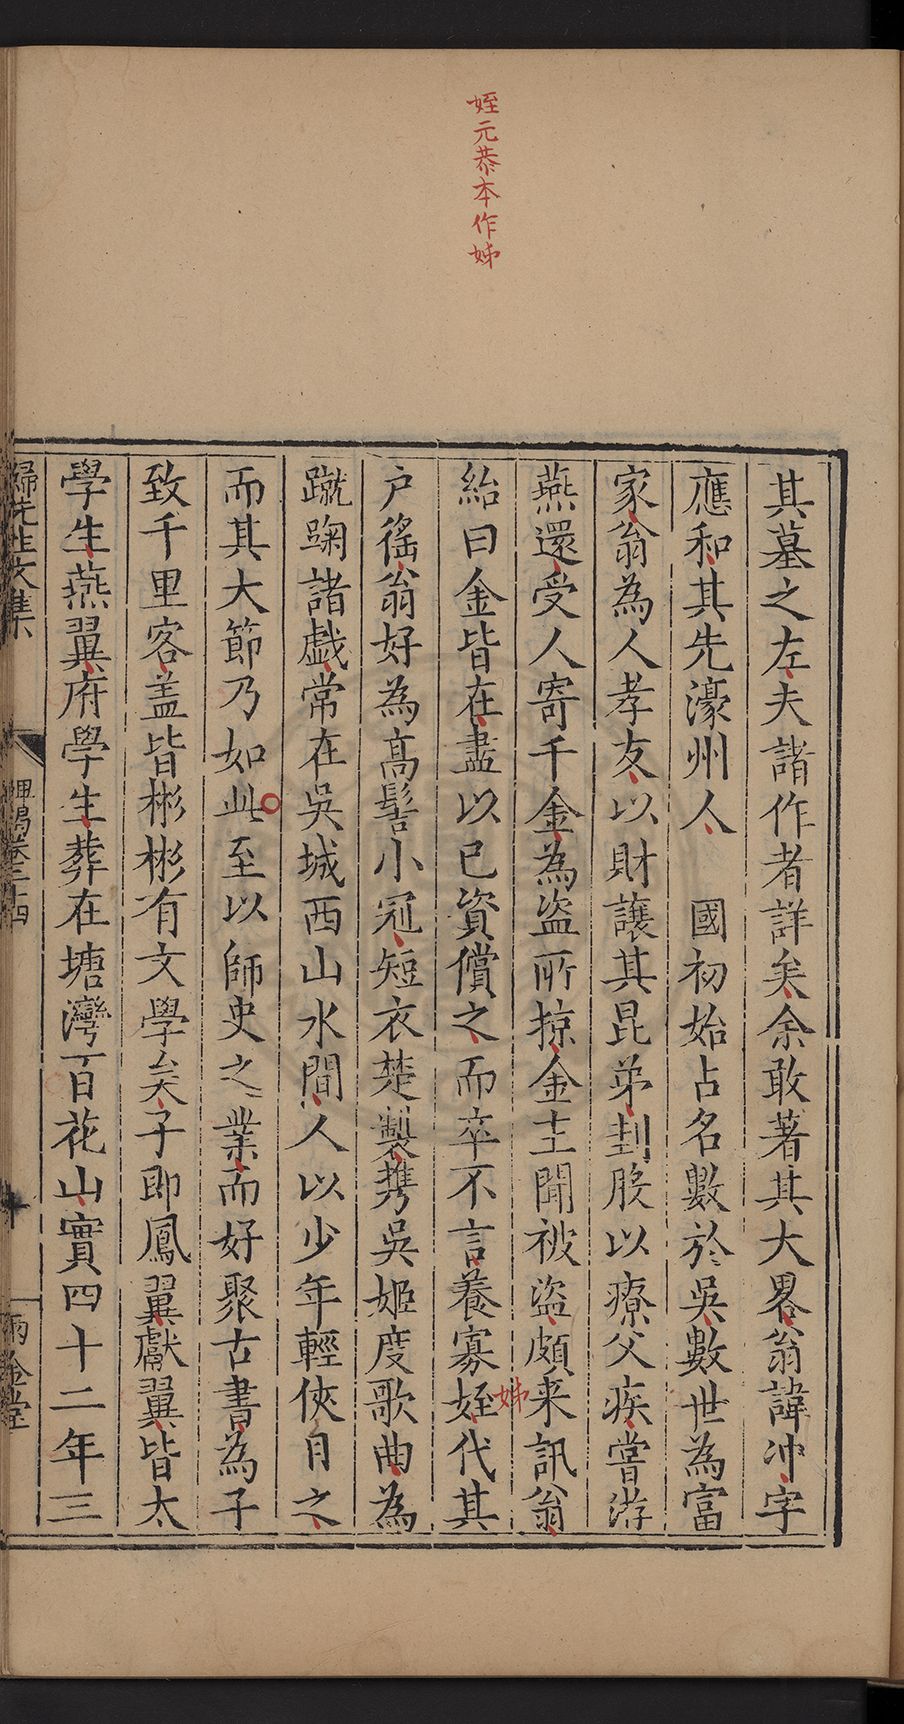 姪元恭本作姊
其墓之左夫諸作者詳矣余敢著其大畧翁諱冲字
應和其先濠州人　國初始占名數於吳數世為富
家翁為人孝友以財讓其昆弟刲股以療父疾嘗游
燕還受人寄千金為盜所掠金主聞被盜頗来訊翁
紿曰金皆在盡以已資償之而卒不言養寡姪代其
姊
戶徭翁好為高髻小冠短衣楚製攜吳姬度歌曲為
蹴踘諸戲常在吳城西山水間人以少年輕俠目之
而其大節乃如此至以師史之業而好聚古書為子
致千里客盖皆彬彬有文學矣子即鳳翼獻翼皆太
學生燕翼府學生葬在塘灣百花山實四十二年三
歸先生文集
卷二十四